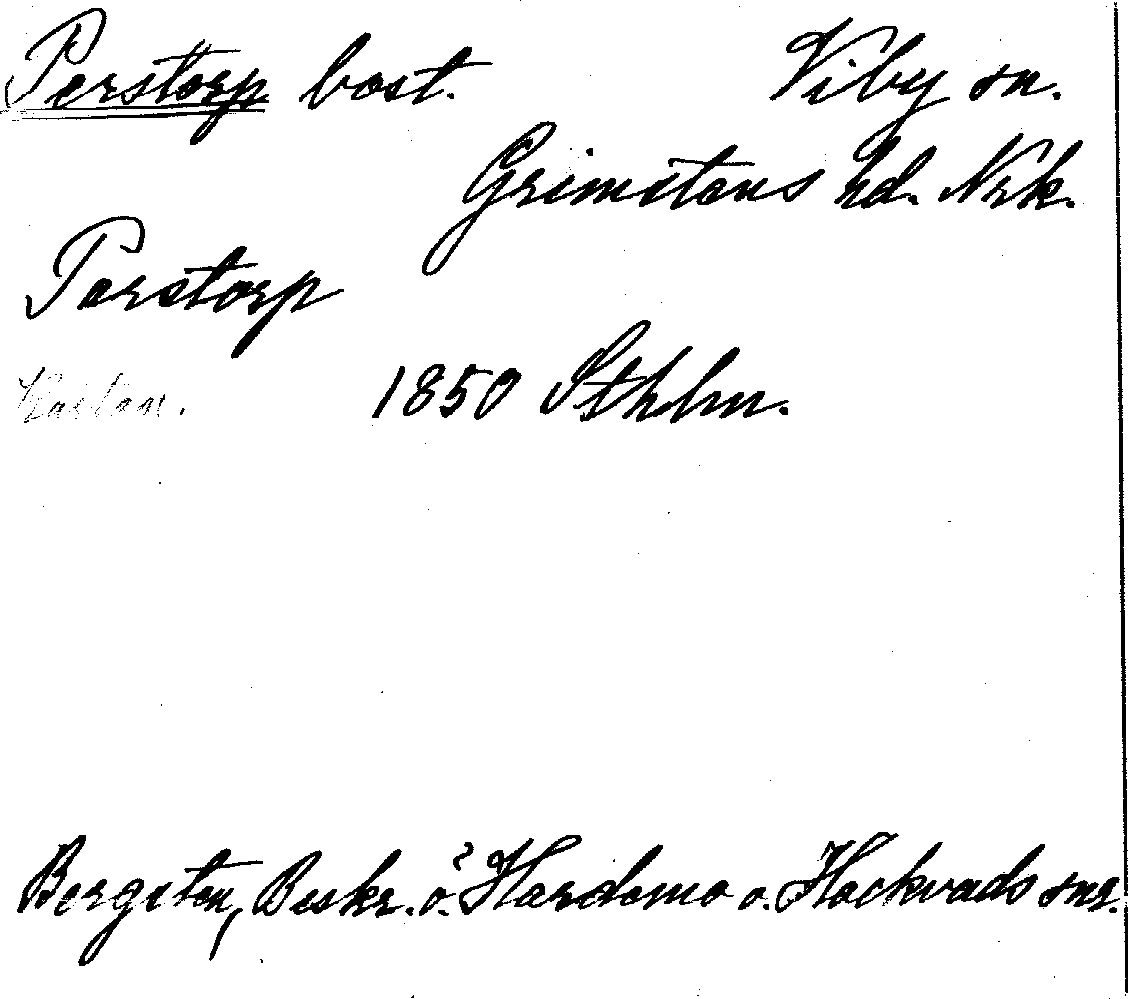 Perstorp bost. Viby sn.
Grimstens hd. Nrk.
Parstorp
Kartan. 1850 Sthlm.
Bergsten, Beskr. ö. Hardemo o. Hackvads snr.